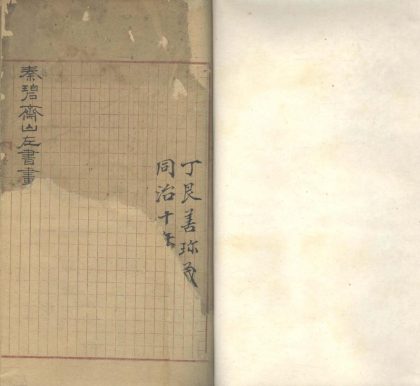 丁艮善珎藏
同治十年
秦碧齋山左書畫